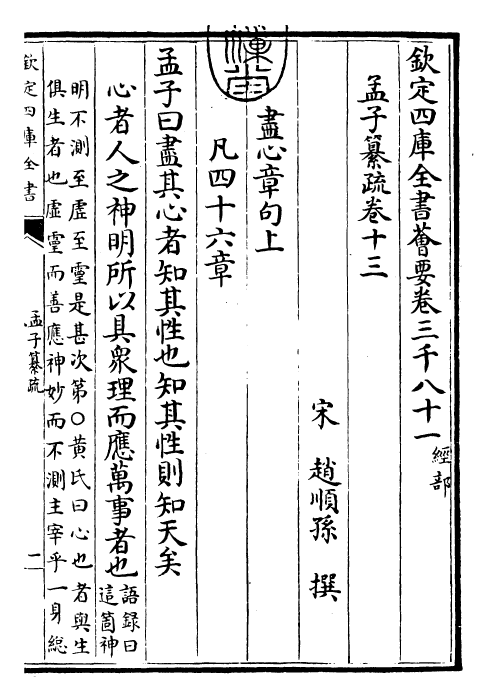 欽定四庫全書薈要卷三千八十一 經部
孟子纂疏卷十三
宋 趙順孫 撰
盡心章句上
凡四十六章
孟子曰盡其心者知其性也知其性則知天矣
心者人之神明所以具衆理而應萬事者也 語錄曰
這箇神
明不測至虛至靈是甚次第○黃氏曰心也者與生
俱生者也虛靈而善應神妙而不測主宰乎一身總
欽定四庫全書
孟子纂疏